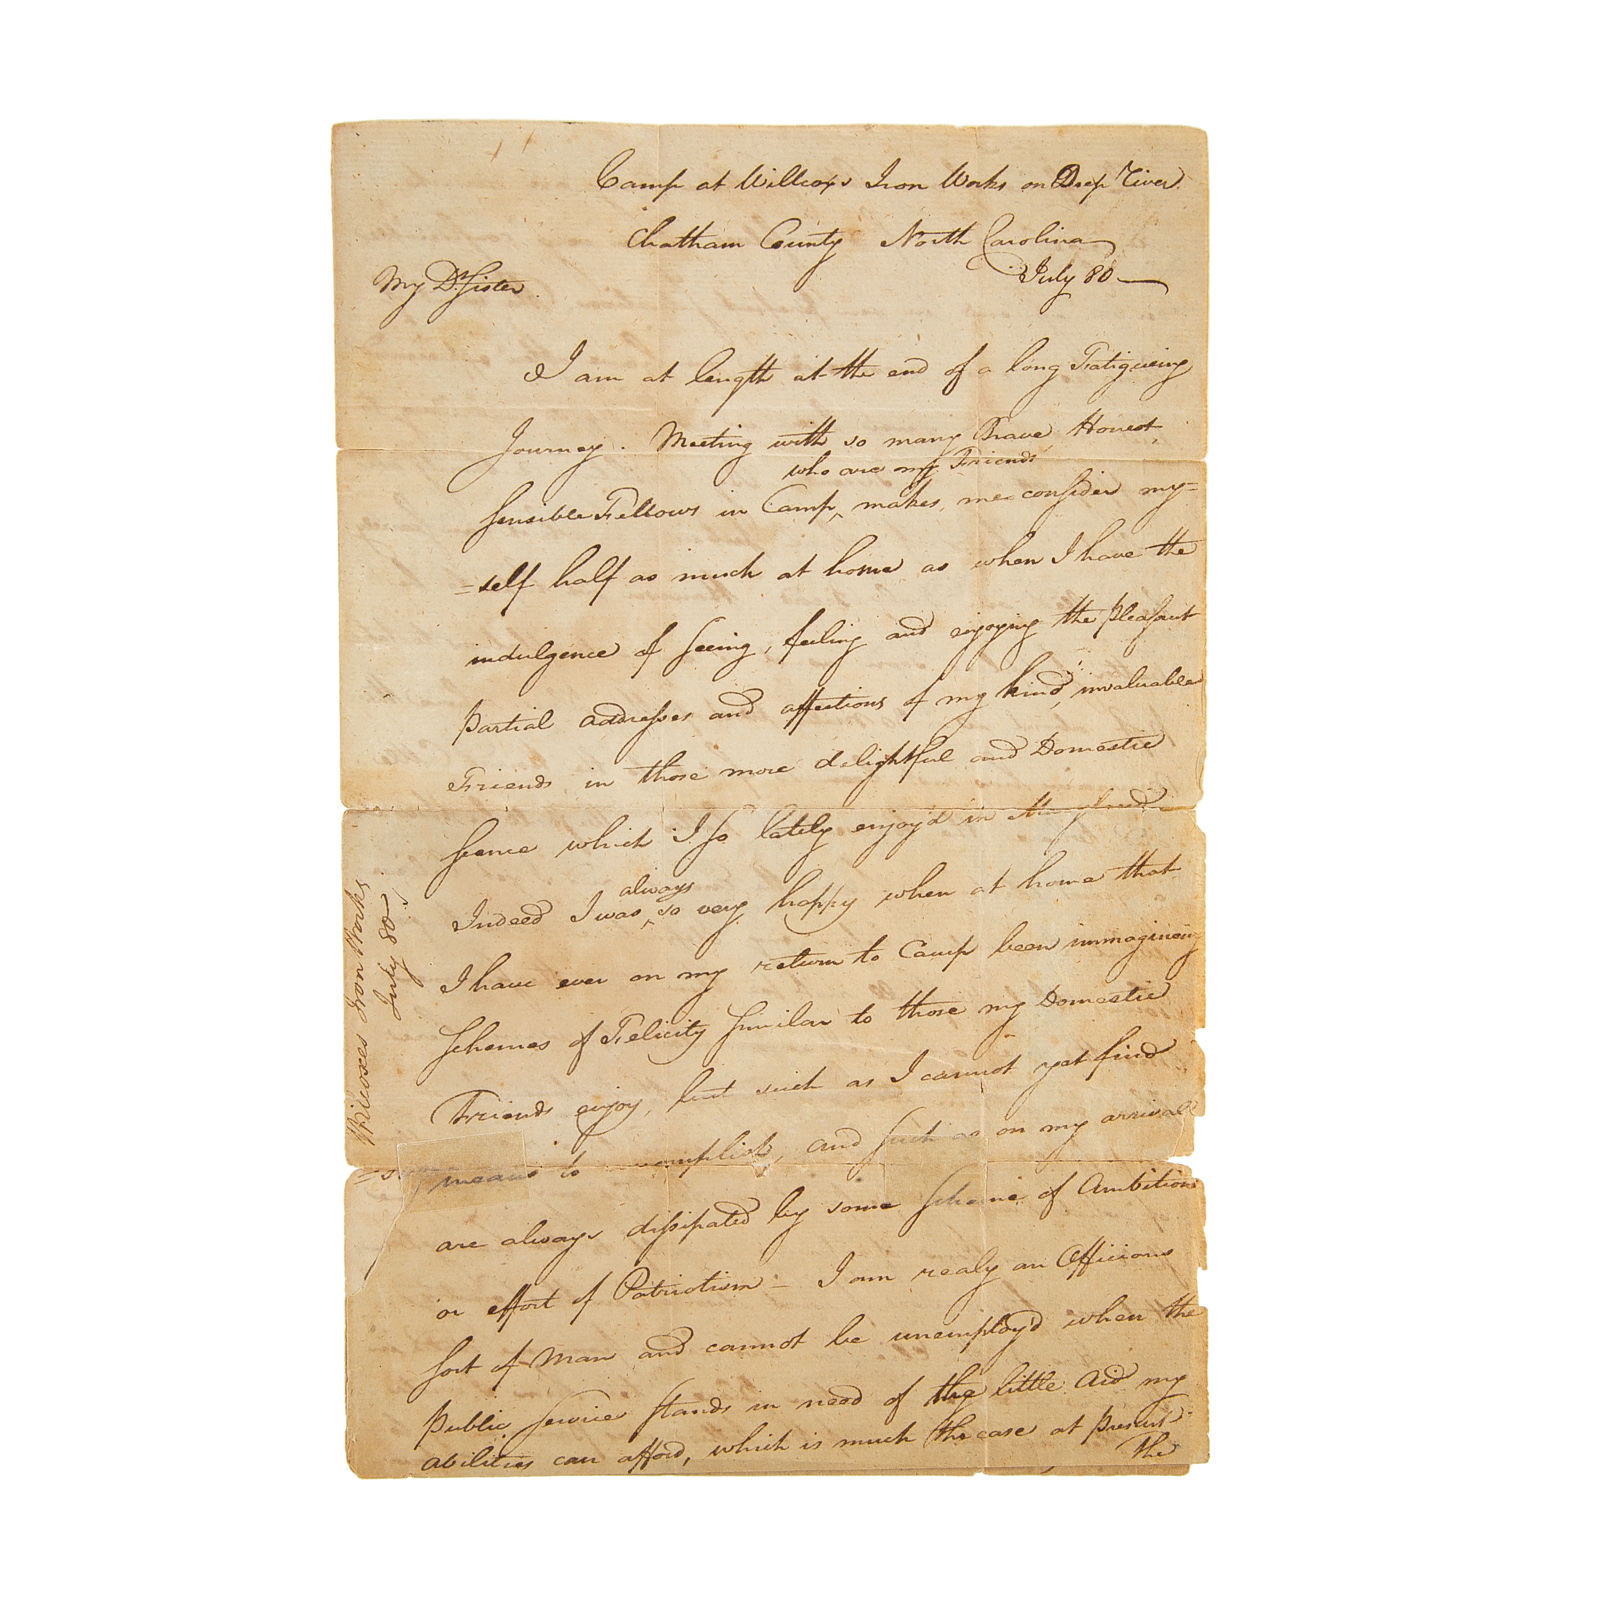 Camp at Willcoxs Iron Works on Deep River
Chatham County North Carolina
July 80
My Dr Sister
I am at length at the end of a long Fatigueing
Journey. Meeting with so many Brave, Honest,
who are my Friends
Sensible Fellows in Camp ^ makes me consider my=
=self half as much at home as when I have the
indulgence of Seeing, feeling and enjoying the pleasant
Partial addresses and affections of my kind, invaluable
Friends in those more delightful and Domestic
Scene which I so lately enjoy'd in Maryland
always
Indeed I was ^ so very happy when at home that
I have ever on my return to Camp been immagineing
Schemes of Felicity Similar to those my Domestic
Friends enjoy, but such as I cannot yet find
means to, and such as on my arrival
are always dissipated by some Scheme of Ambition
or effort of Patriotism – I am realy an Officious
Sort of Man and cannot be unemploy'd when the
Public Service Stands in need of the little Aid my
abilities can afford, which is much the case at Present
The
Wilcoxes Iron Works
July 80